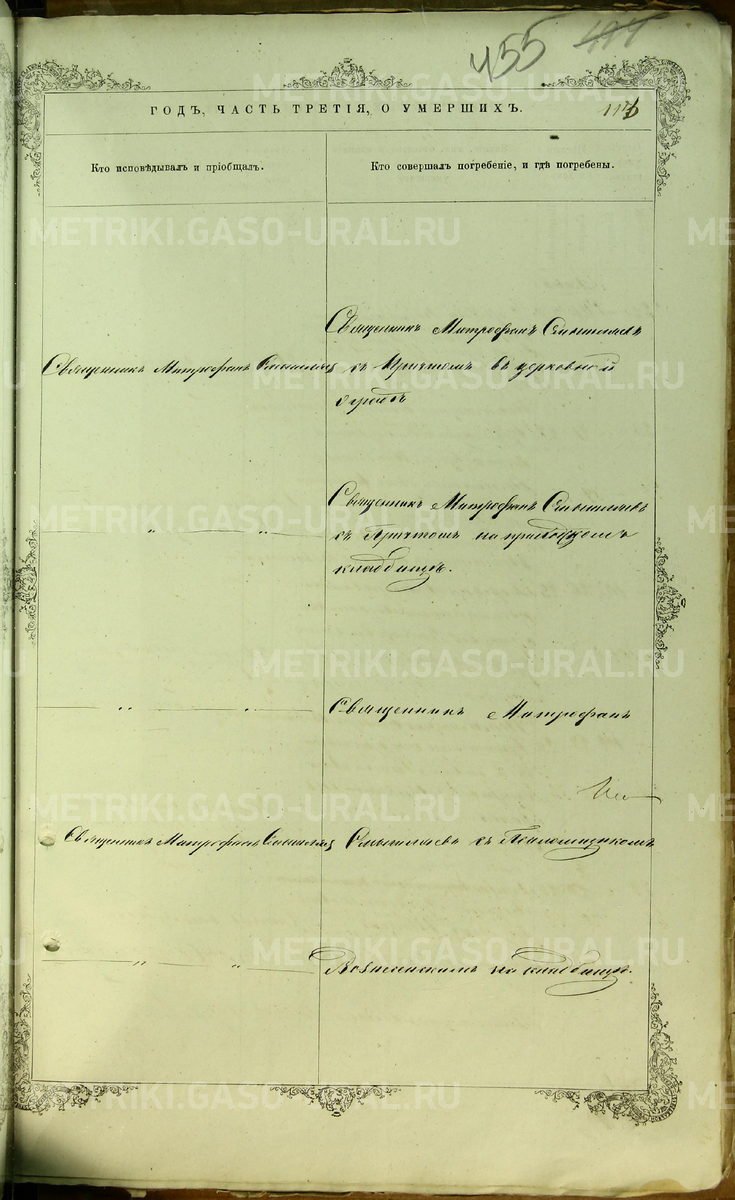 455
ГОДЪ, ЧАСТЬ ТРЕТІЯ, О УМЕРШИХЪ.
Кто исповѣдывалъ и пріобщалъ.
Кто совершалъ погребеніе, и гдѣ погребены.
Священникъ Митрофанъ
Священникъ Митрофанъ Смышляевъ
съ Причтомъ въ церковной
оградѣ
" "
Священникъ Митрофанъ Смышляевъ
съ Причтомъ на приходскомъ
кладбищѣ.
" "
Священникъ Митрофанъ
Священникъ Митрофанъ Смышляевъ
Смышляевъ съ Псаломщикомъ
" "
Вознесенскимъ на кладбищѣ.
METRIKI.GASO-URAL.RU